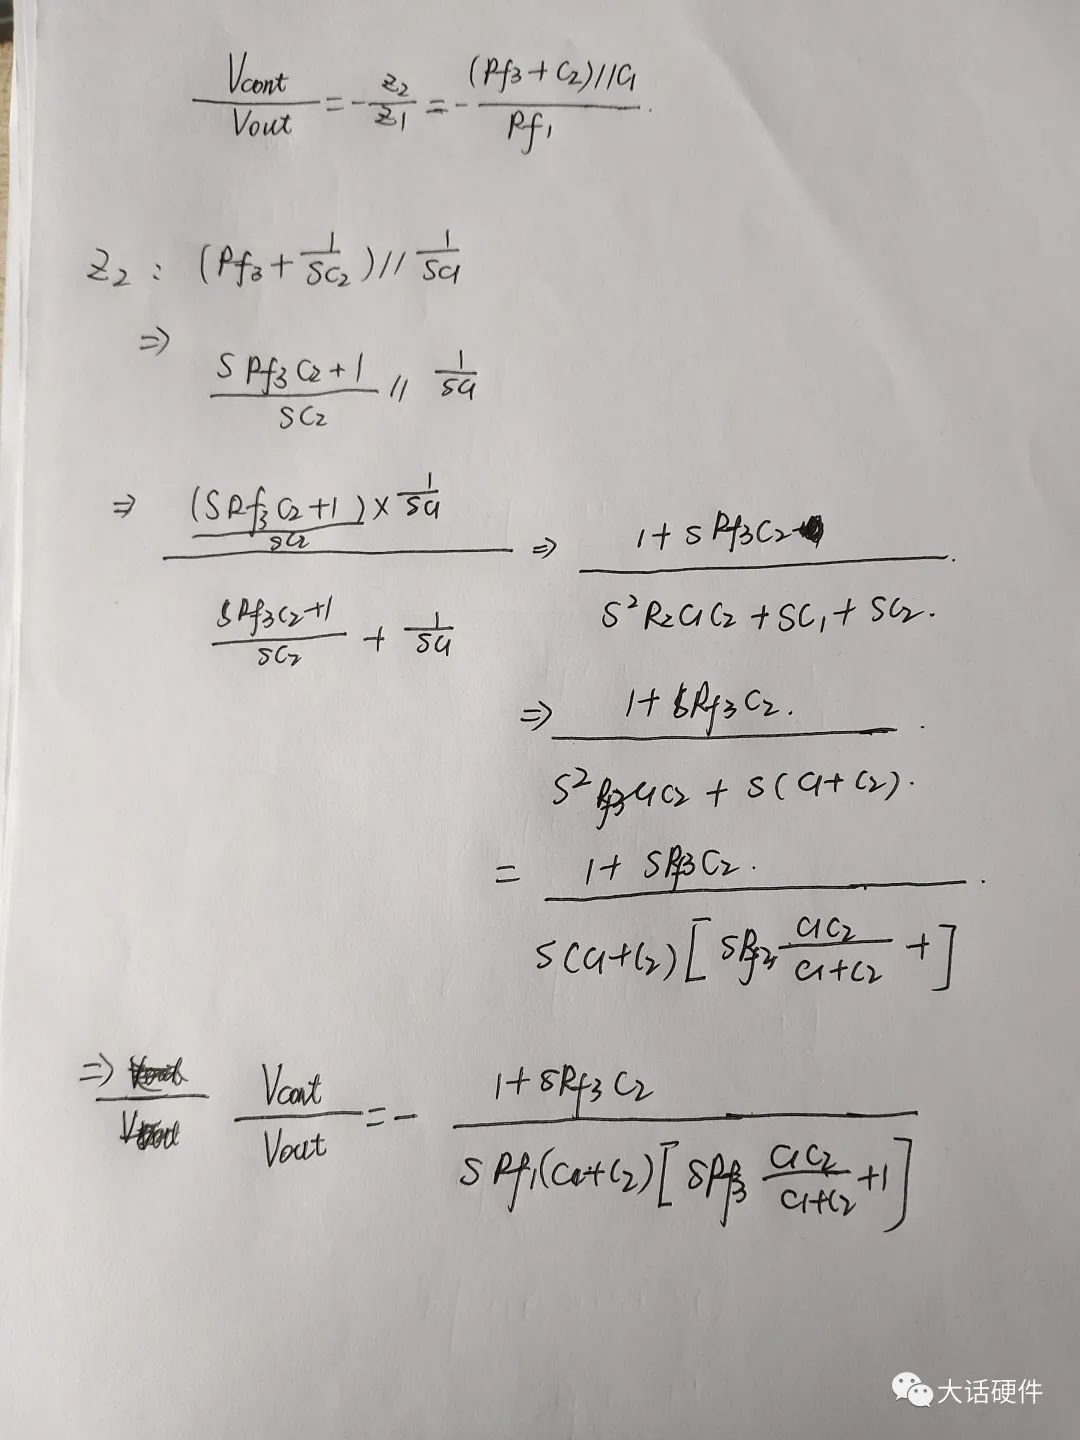 Vcont/Vout = - Z2/Z1 = - (Rf3 + C2)//C1 / Rf1.
Z2 : (Rf3 + 1/SC2) // 1/SC1
⇒ (S Rf3 C2 + 1)/SC2 // 1/SC1
⇒ ((S Rf3 C2 + 1)/SC2 × 1/SC1) / ((S Rf3 C2 + 1)/SC2 + 1/SC1) ⇒ (1 + S Rf3 C2) / (S² R2 C1 C2 + SC1 + SC2).
⇒ (1 + S Rf3 C2.) / (S² Rf3 C1 C2 + S(C1 + C2).)
= (1 + S Rf3 C2.) / (S(C1 + C2)[S Rf3 C1C2/(C1 + C2) + ])
⇒ Vcont/Vout = - (1 + S Rf3 C2) / (S Rf1(C1 + C2)[S Rf3 C1C2/(C1 + C2) + 1])
大话硬件